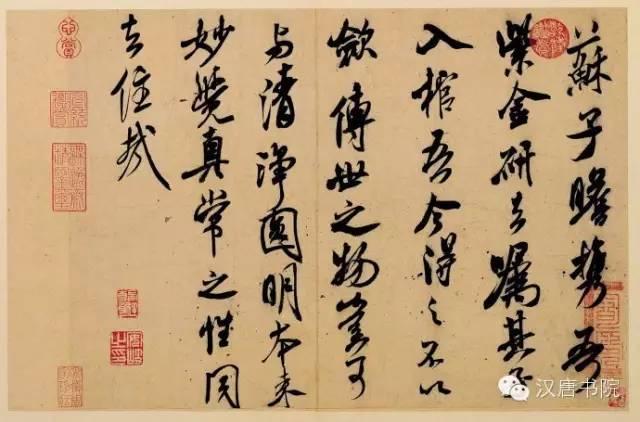 蘇子瞻携吾
紫金研去嘱其子
入棺吾今得之不以
斂傳世之物豈可
与清净圓明本来
妙覺真常之性同
去住哉
汉唐书院